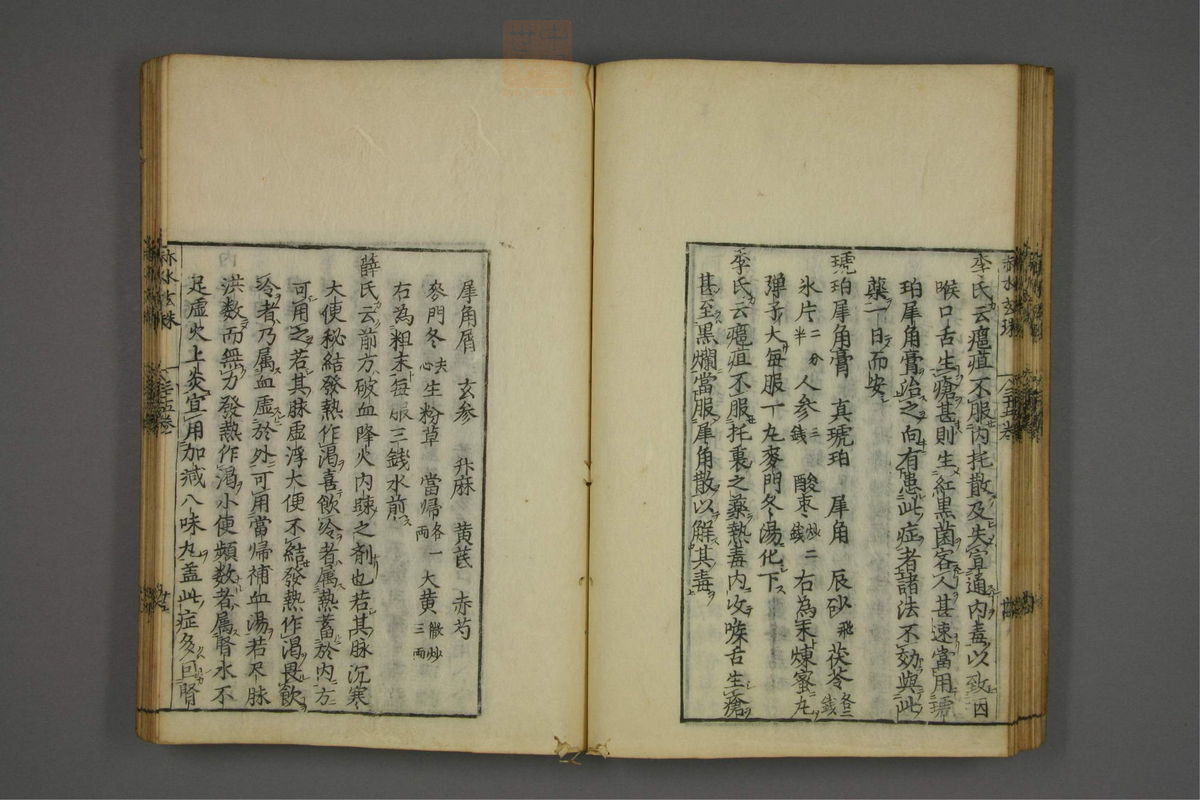 李氏云瘟疽不服内托散及失宣通内毒以致因
喉口舌生瘡甚則生紅黒菌客人甚速當用琥
珀犀角膏治之向有患此症者諸法不効與此
藥一日而安
琥珀犀角膏　真琥珀　犀角　辰砂飛　茯苓各二錢
氷片二分半　人参三錢　酸棗炒二錢　右為末煉蜜丸
弹子大每服一丸麥門冬湯化下
李氏云瘟疽不服托裏之藥熱毒内攻喉舌生瘡
甚至黒爛當服犀角散以解其毒
犀角屑　玄参　升麻　黄芪　赤芍
麥門冬去心　生粉草　當歸各一両　大黄微炒三両
右為粗末每服三錢水煎
薛氏云前方破血降火内疎之剤也若其脉沉寒
大便秘結發熱作渴喜飲冷者属熱蓄於内方
可用之若其脉虚浮大便不結發熱作渴畏飲
冷者乃属血虚於外可用當歸補血湯若尽脉
洪数而無力發熱作渴小便頻数者属腎水不
足虚火上炎宜用加减八味丸盖此症多因腎
赤水玄珠